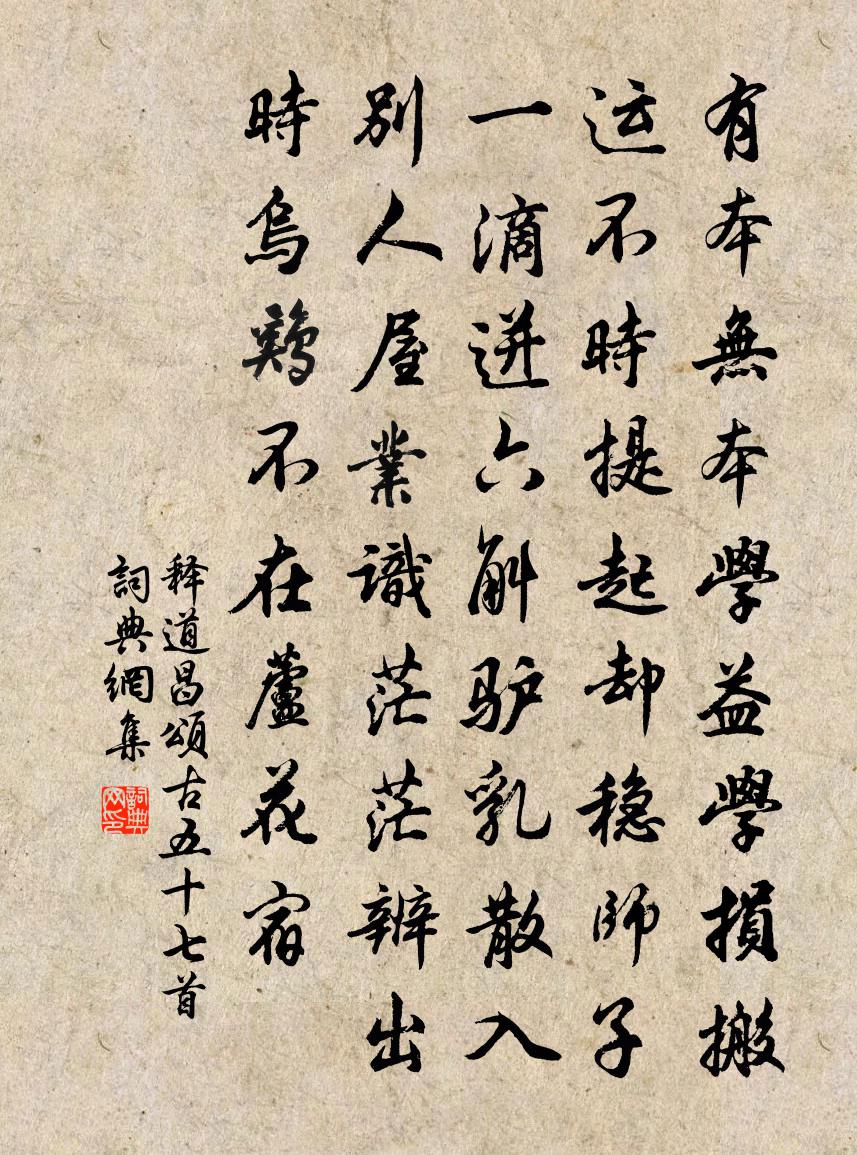 有本無本學益學損搬
运不時提起却稳師子
一滴迸六斛驴乳散入
别人屋業識茫茫辨出
時烏鷄不在蘆花宿
释道昌頌古五十七首
詞典網集
詞典网印